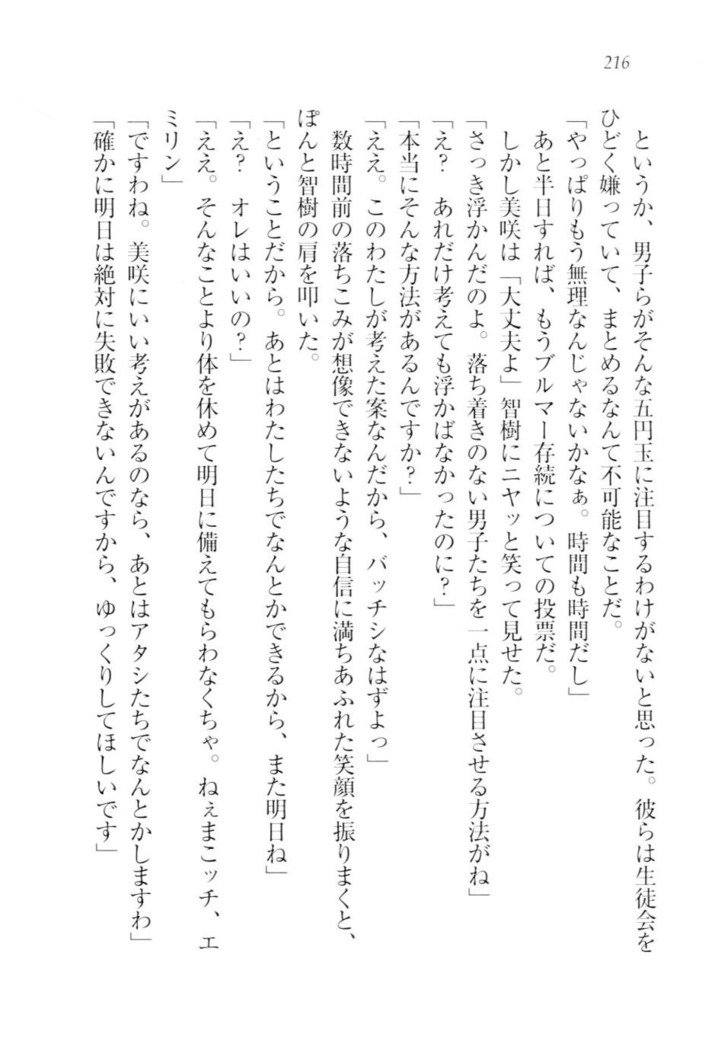 216
というか、男子らがそんな五円玉に注目するわけがないと思った。彼らは生徒会を
ひどく嫌っていて、まとめるなんて不可能なことだ。
「やっぱりもう無理なんじゃないかなぁ。時間も時間だし」
あと半日すれば、もうブルマー存続についての投票だ。
しかし美咲は「大丈夫よ」智樹にニヤッと笑って見せた。
「さっき浮かんだのよ。落ち着きのない男子たちを一点に注目させる方法がね」
「え？　あれだけ考えても浮かばなかったのに？」
「本当にそんな方法があるんですか？」
「ええ。このわたしが考えた案なんだから、バッチシなはずよっ」
数時間前の落ちこみが想像できないような自信に満ちあふれた笑顔を振りまくと、
ぽんと智樹の肩を叩いた。
「ということだから。あとはわたしたちでなんとかできるから、また明日ね」
「え？　オレはいいの？」
「ええ。そんなことより体を休めて明日に備えてもらわなくちゃ。ねぇまこッチ、エ
ミリン」
「ですわね。美咲にいい考えがあるのなら、あとはアタシたちでなんとかしますわ」
「確かに明日は絶対に失敗できないんですから、ゆっくりしてほしいです」